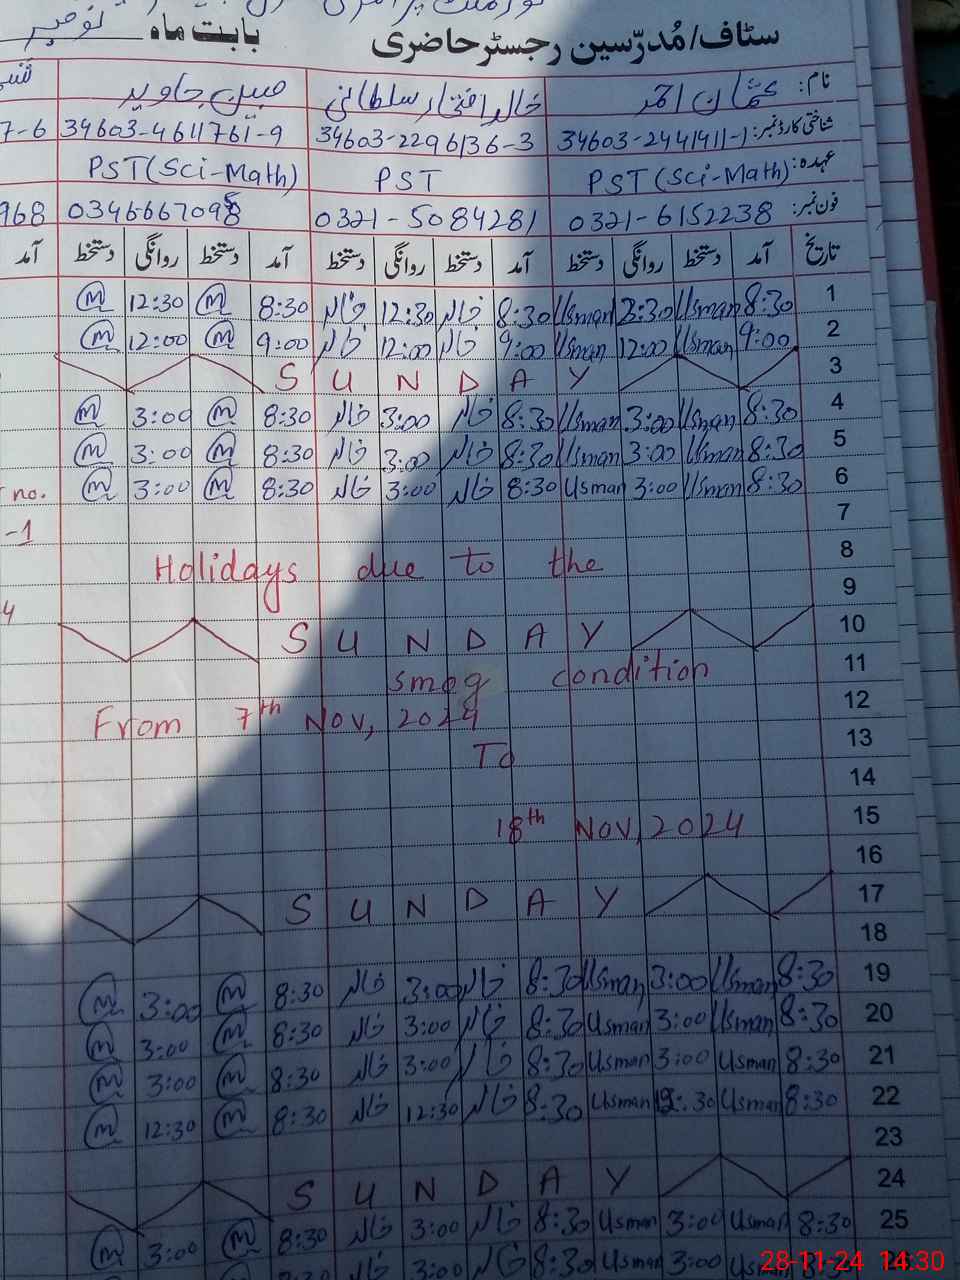 سٹاف/مُدرّسین رجسٹر حاضری بابت ماہ نومبر
نام: عثمان احمد خالد افتخار سلطانی مبین جاوید
شناختی کارڈ نمبر: 34603-2441411-1 34603-2296136-3 34603-4611761-9 7-6
عہدہ: PST (Sci-Math) PST PST (Sci-Math)
فون نمبر: 0321-6152238 0321-5084281 03466670958 968
تاریخ آمد دستخط روانگی دستخط آمد دستخط روانگی دستخط آمد دستخط روانگی دستخط آمد
1 8:30 Usman 12:30 Usman 8:30 خالد 12:30 خالد 8:30 m 12:30 m
2 9:00 Usman 12:00 Usman 9:00 خالد 12:00 خالد 9:00 m 12:00 m
3 S U N D A Y
4 8:30 Usman 3:00 Usman 8:30 خالد 3:00 خالد 8:30 m 3:00 m
5 8:30 Usman 3:00 Usman 8:30 خالد 3:00 خالد 8:30 m 3:00 m
6 8:30 Usman 3:00 Usman 8:30 خالد 3:00 خالد 8:30 m 3:00 m no.
7 -1
8 Holidays due to the
9 4
10 S U N D A Y
11 smog condition
12 From 7th Nov, 2024
13 To
14
15 18th Nov, 2024
16
17 S U N D A Y
18
19 8:30 Usman 3:00 Usman 8:30 خالد 3:00 خالد 8:30 m 3:00 m
20 8:30 Usman 3:00 Usman 8:30 خالد 3:00 خالد 8:30 m 3:00 m
21 8:30 Usman 3:00 Usman 8:30 خالد 3:00 خالد 8:30 m 3:00 m
22 8:30 Usman 12:30 Usman 8:30 خالد 12:30 خالد 8:30 m 12:30 m
23
24 S U N D A Y
25 8:30 Usman 3:00 Usman 8:30 خالد 3:00 خالد 8:30 m 3:00 m
Usman 3:00 Usman 8:30 خالد 3:00 خالد 8:30
28-11-24 14:30